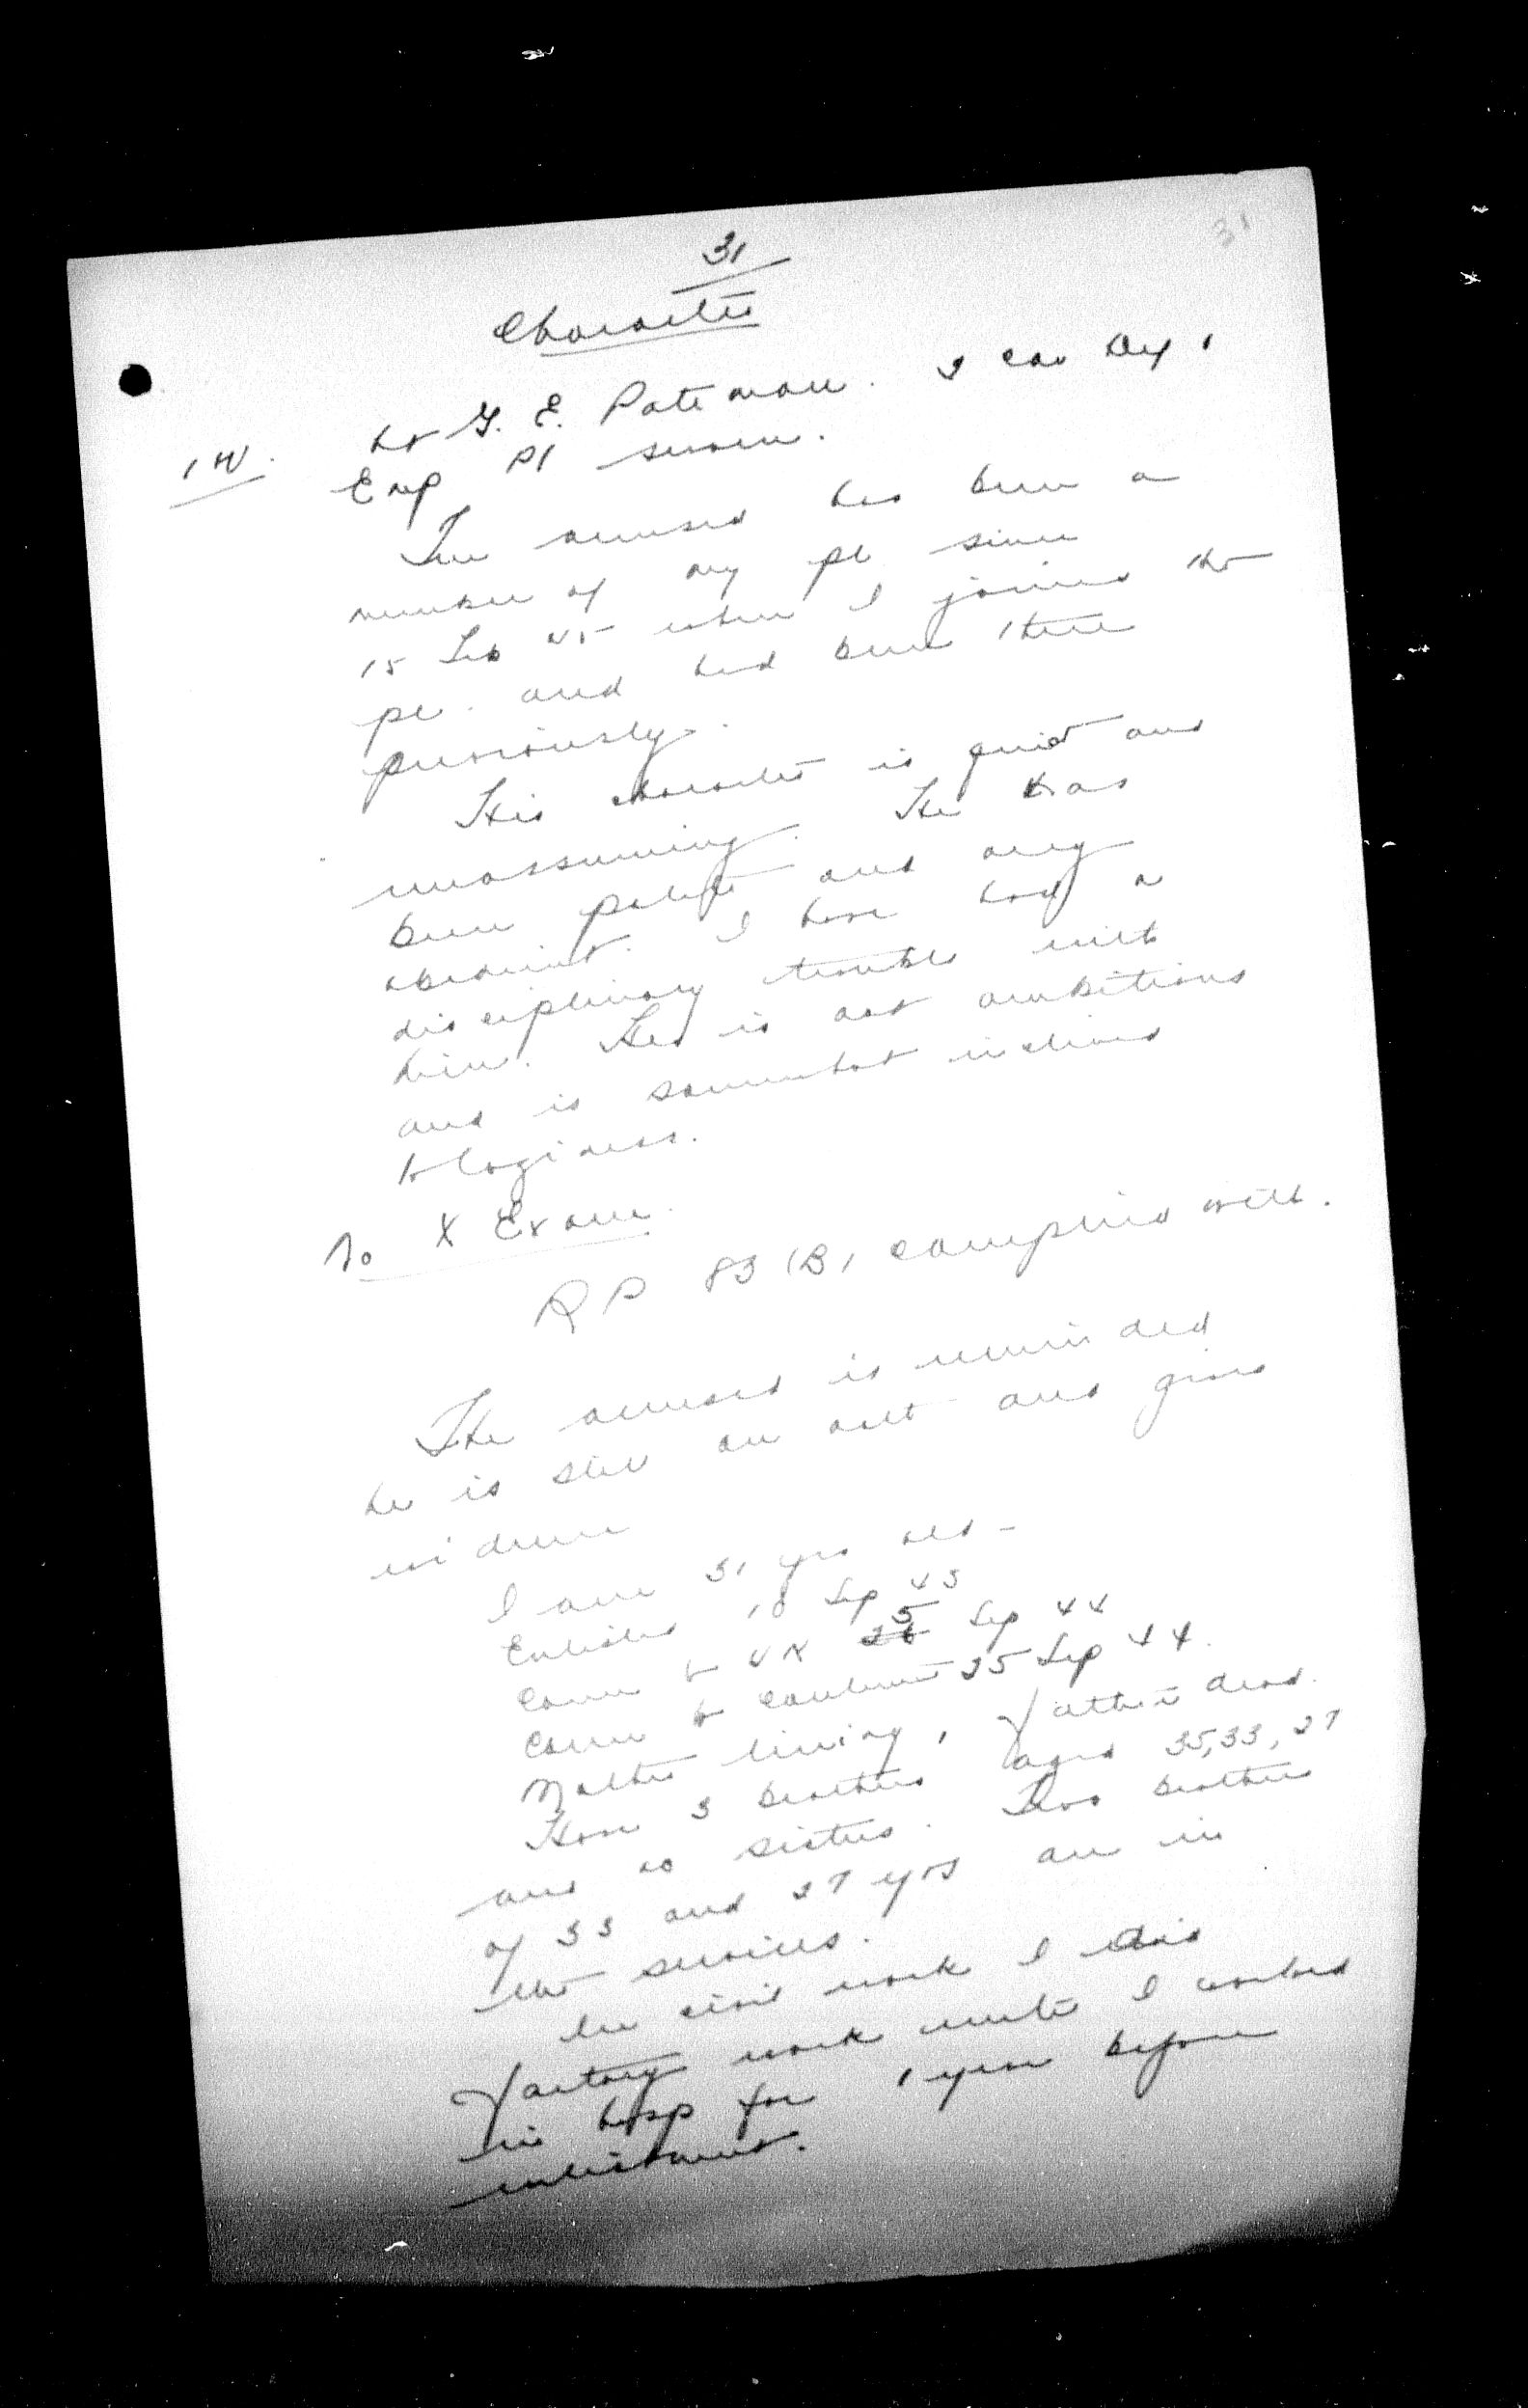 31
31
Character
1 W. Lt G. E. Pateman. 2 Can Dep 1
Emp Pl sworn.
The accused has been a
member of my pl since
15 Feb 45 when I joined the
pl. and had been there
previously.
His character is quiet and
unassuming. He has
been polite and
obedient. I have had
disciplinary trouble with
him. He is not ambitious
and is somewhat inclined
to laziness.
No X Exam.
RP 83 (B) complied with.
The accused is reminded
he is still on oath and gives
evidence
I am 31 yrs old -
Enlisted 18 Sep 43
Came to UK 5 Sep 44
Came to Continent 25 Sep 44.
Mother living, Father dead.
Have 3 brothers aged 35, 33, 27
and no sisters. Two brothers
of 33 and 27 yrs are in
the services.
In civil work I did
factory work until I worked
in hosp for 1 year before
enlistment.